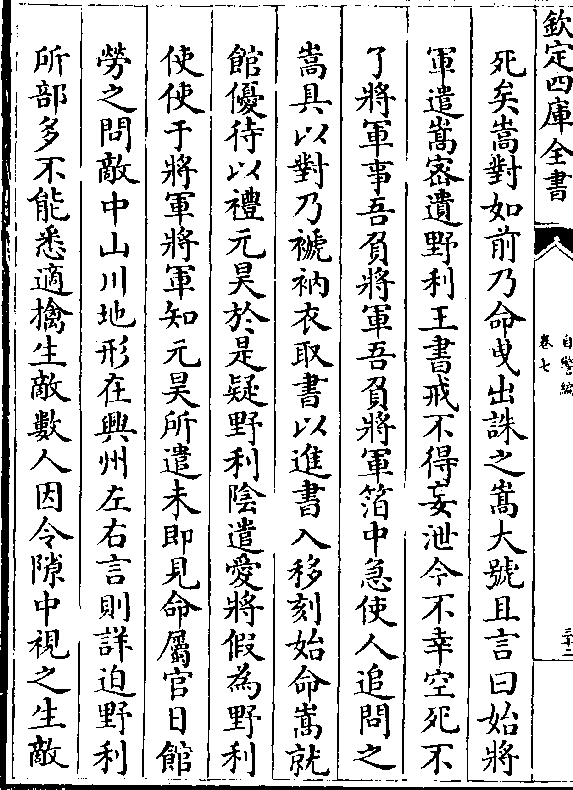 欽定四庫全書
自警編
卷七
三十二
死矣嵩對如前乃命曵出誅之嵩大號且言曰始將
軍遣嵩宻遺野利王書戒不得妄泄今不幸空死不
了將軍事吾負將軍吾負將軍箔中急使人追問之
嵩具以對乃褫衲衣取書以進書入移刻始命嵩就
館優待以禮元昊於是疑野利陰遣愛將假為野利
使使于將軍將軍知元昊所遣未即見命屬官日館
勞之問敵中山川地形在興州左右言則詳迫野利
所部多不能悉適擒生敵數人因令隙中視之生敵